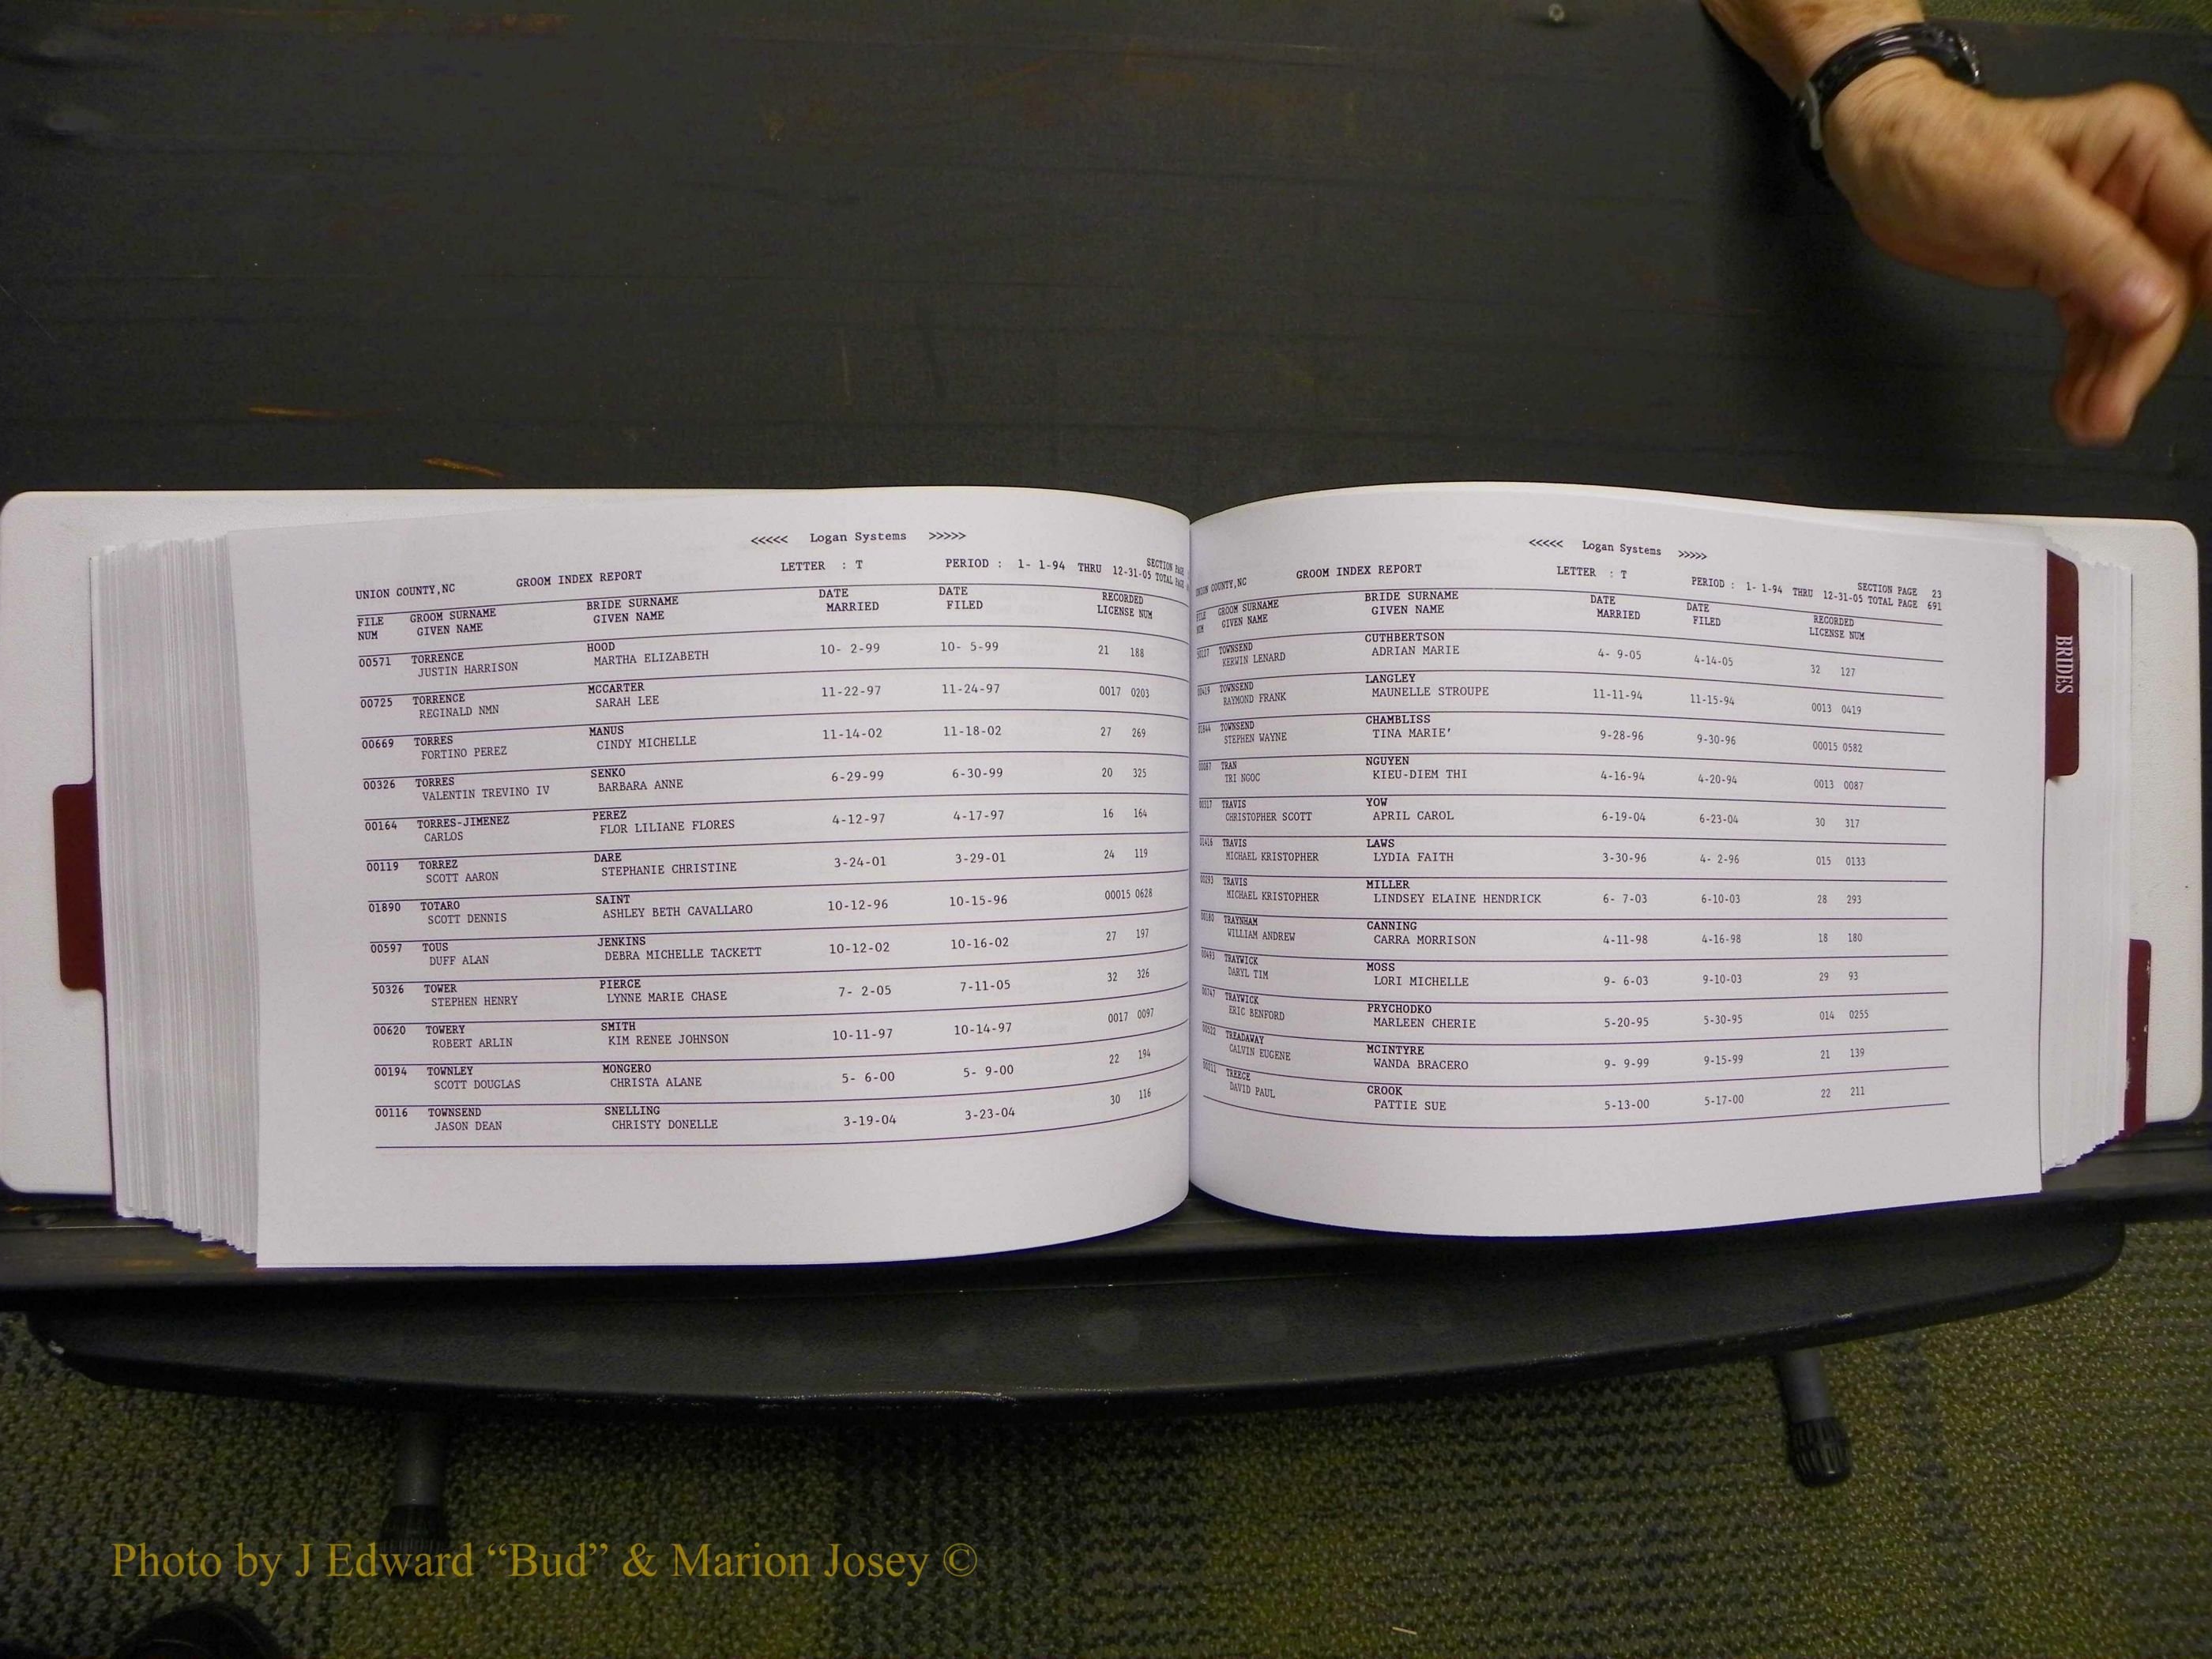 <<<<< Logan Systems >>>>>
UNION COUNTY,NC GROOM INDEX REPORT LETTER : T PERIOD : 1- 1-94 THRU 12-31-05 SECTION PAGE
TOTAL PAGE
FILE GROOM SURNAME BRIDE SURNAME DATE DATE RECORDED
NUM GIVEN NAME GIVEN NAME MARRIED FILED LICENSE NUM
00571 TORRENCE HOOD 10- 2-99 10- 5-99 21 188
JUSTIN HARRISON MARTHA ELIZABETH
00725 TORRENCE MCCARTER 11-22-97 11-24-97 0017 0203
REGINALD NMN SARAH LEE
00669 TORRES MANUS 11-14-02 11-18-02 27 269
FORTINO PEREZ CINDY MICHELLE
00326 TORRES SENKO 6-29-99 6-30-99 20 325
VALENTIN TREVINO IV BARBARA ANNE
00164 TORRES-JIMENEZ PEREZ 4-12-97 4-17-97 16 164
CARLOS FLOR LILIANE FLORES
00119 TORREZ DARE 3-24-01 3-29-01 24 119
SCOTT AARON STEPHANIE CHRISTINE
01890 TOTARO SAINT 10-12-96 10-15-96 00015 0628
SCOTT DENNIS ASHLEY BETH CAVALLARO
00597 TOUS JENKINS 10-12-02 10-16-02 27 197
DUFF ALAN DEBRA MICHELLE TACKETT
50326 TOWER PIERCE 7- 2-05 7-11-05 32 326
STEPHEN HENRY LYNNE MARIE CHASE
00620 TOWERY SMITH 10-11-97 10-14-97 0017 0097
ROBERT ARLIN KIM RENEE JOHNSON
00194 TOWNLEY MONGERO 5- 6-00 5- 9-00 22 194
SCOTT DOUGLAS CHRISTA ALANE
00116 TOWNSEND SNELLING 3-19-04 3-23-04 30 116
JASON DEAN CHRISTY DONELLE
<<<<< Logan Systems >>>>>
UNION COUNTY,NC GROOM INDEX REPORT LETTER : T PERIOD : 1- 1-94 THRU 12-31-05 SECTION PAGE 23
TOTAL PAGE 691
FILE GROOM SURNAME BRIDE SURNAME DATE DATE RECORDED
NUM GIVEN NAME GIVEN NAME MARRIED FILED LICENSE NUM
TOWNSEND CUTHBERTSON 4- 9-05 4-14-05 32 127
KERWIN LENARD ADRIAN MARIE
TOWNSEND LANGLEY 11-11-94 11-15-94 0013 0419
RAYMOND FRANK MAUNELLE STROUPE
TOWNSEND CHAMBLISS 9-28-96 9-30-96 00015 0582
STEPHEN WAYNE TINA MARIE'
TRAN NGUYEN 4-16-94 4-20-94 0013 0087
TRI NGOC KIEU-DIEM THI
00317 TRAVIS YOW 6-19-04 6-23-04 30 317
CHRISTOPHER SCOTT APRIL CAROL
01416 TRAVIS LAWS 3-30-96 4- 2-96 015 0133
MICHAEL KRISTOPHER LYDIA FAITH
00293 TRAVIS MILLER 6- 7-03 6-10-03 28 293
MICHAEL KRISTOPHER LINDSEY ELAINE HENDRICK
00180 TRAYNHAM CANNING 4-11-98 4-16-98 18 180
WILLIAM ANDREW CARRA MORRISON
00493 TRAYWICK MOSS 9- 6-03 9-10-03 29 93
DARYL TIM LORI MICHELLE
00747 TRAYWICK PRYCHODKO 5-20-95 5-30-95 014 0255
ERIC BENFORD MARLEEN CHERIE
00522 TREADAWAY MCINTYRE 9- 9-99 9-15-99 21 139
CALVIN EUGENE WANDA BRACERO
00211 TREECE CROOK 5-13-00 5-17-00 22 211
DAVID PAUL PATTIE SUE
BRIDES
Photo by J Edward “Bud” & Marion Josey ©